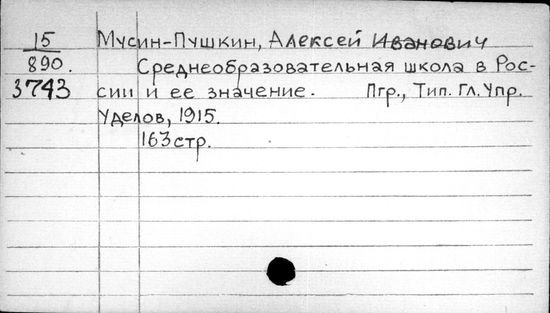 15 Мусин-Пушкин, Алексей Иванович
890. Среднеобразовательная школа в Рос-
3743 сии и ее значение. Пгр., Тип. Гл. Упр.
Уделов, 1915.
163 стр.